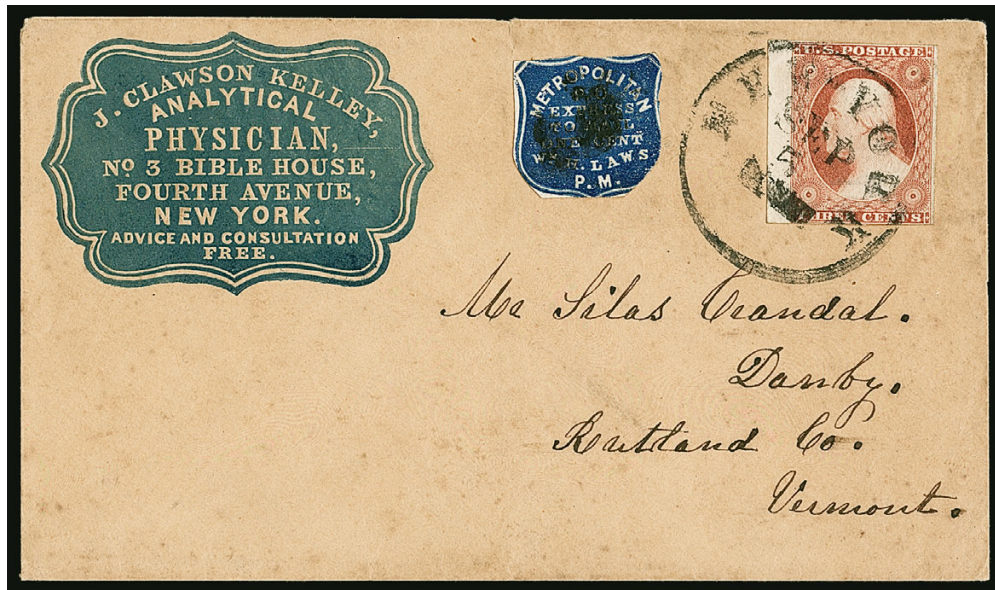 J. CLAWSON KELLEY,
ANALYTICAL
PHYSICIAN,
No. 3 BIBLE HOUSE,
FOURTH AVENUE,
NEW YORK.
ADVICE AND CONSULTATION
FREE.
METROPOLITAN
EXPRESS
ONE CENT
LAWS
P.M.
U.S. POSTAGE
THREE CENTS
NEW YORK
SEP
Mr Silas Crandal.
Danby.
Rutland Co.
Vermont.